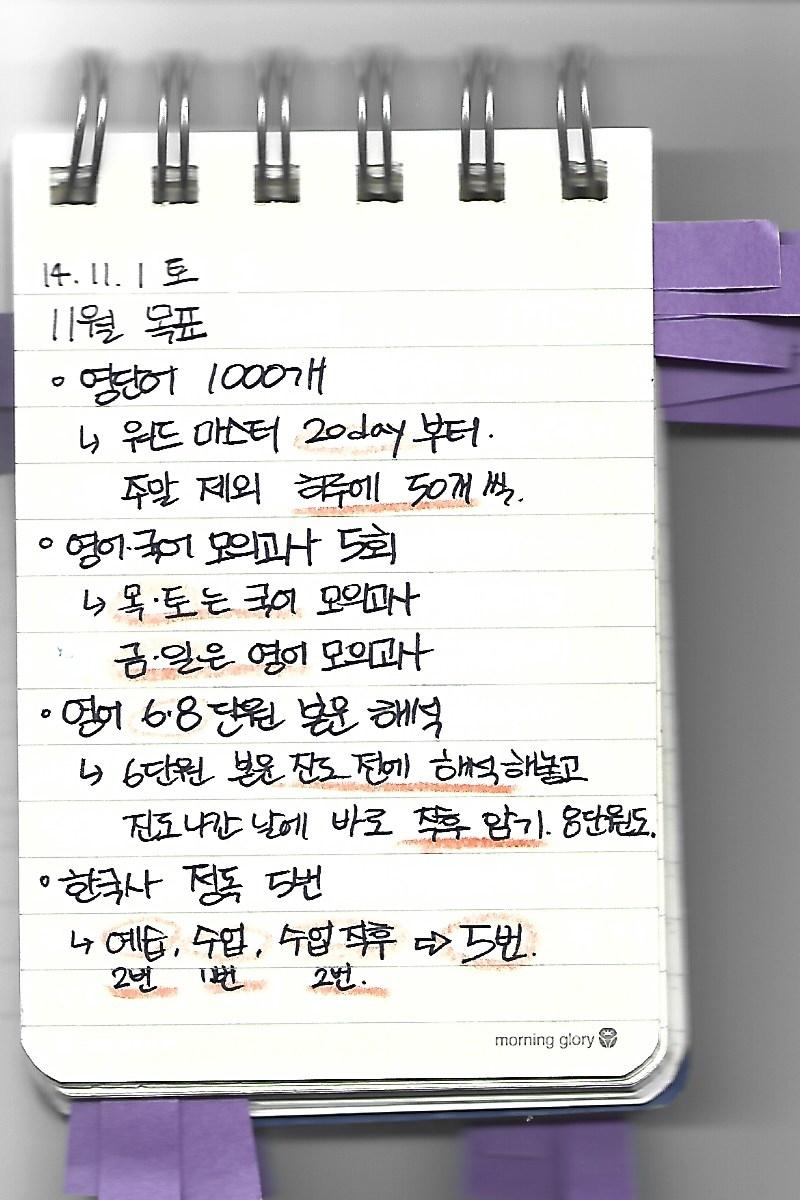 14.11.1 토
11월 목표
◦ 영단어 1000개
↳ 워드 마스터 20day 부터.
주말 제외 하루에 50개 씩.
◦ 영어·국어 모의고사 5회
↳ 목·토는 국어 모의고사
금·일은 영어 모의고사
• 영어 6·8 단원 본문 해석
↳ 6단원 본문 진도 전에 해석 해놓고
진도 나간 날에 바로 직후 암기. 8단원도.
◦ 한국사 정독 5번
↳ 예습, 수업, 수업 직후 ⇨ 5번.
2번 1번 2번.
morning glory